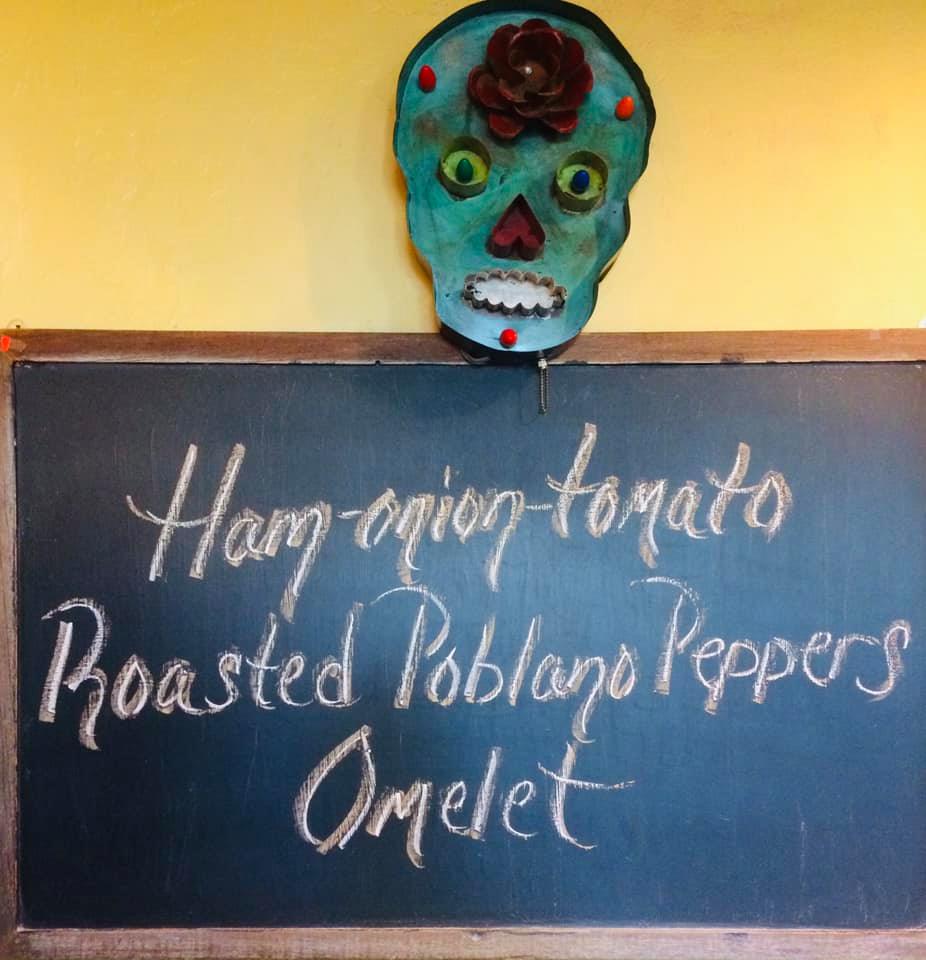 Ham-onion-tomato
Roasted Poblano Peppers
Omelet